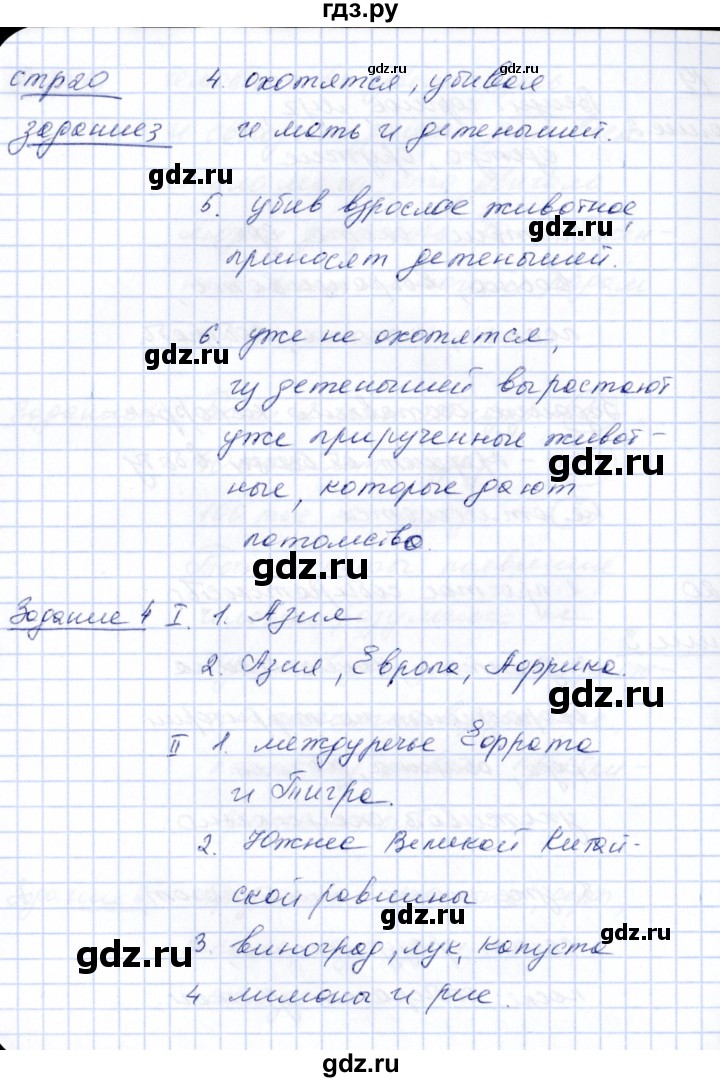 гдз.ру
стр20 4. охотятся, убивая
gdz.ru
задание3 и мать и детенышей.
gdz.ru
gdz.ru
5. убив взрослое животное,
gdz.ru
приносят детенышей.
6. уже не охотятся,
gdz.ru
из детенышей вырастают
уже прирученные живот-
gdz.ru
ные, которые дают
потомство.
gdz.ru
Задание 4 I. 1. Азия
2. Азия, Европа, Африка.
gdz.ru
II 1. междуречье Ефрата
и Тигра.
gdz.ru
2. Южнее Великой Китай-
ской равнины
gdz.ru
gdz.ru
3. виноград, лук, капуста
gdz.ru
4 лимоны и рис.
gdz.ru
gdz.ru